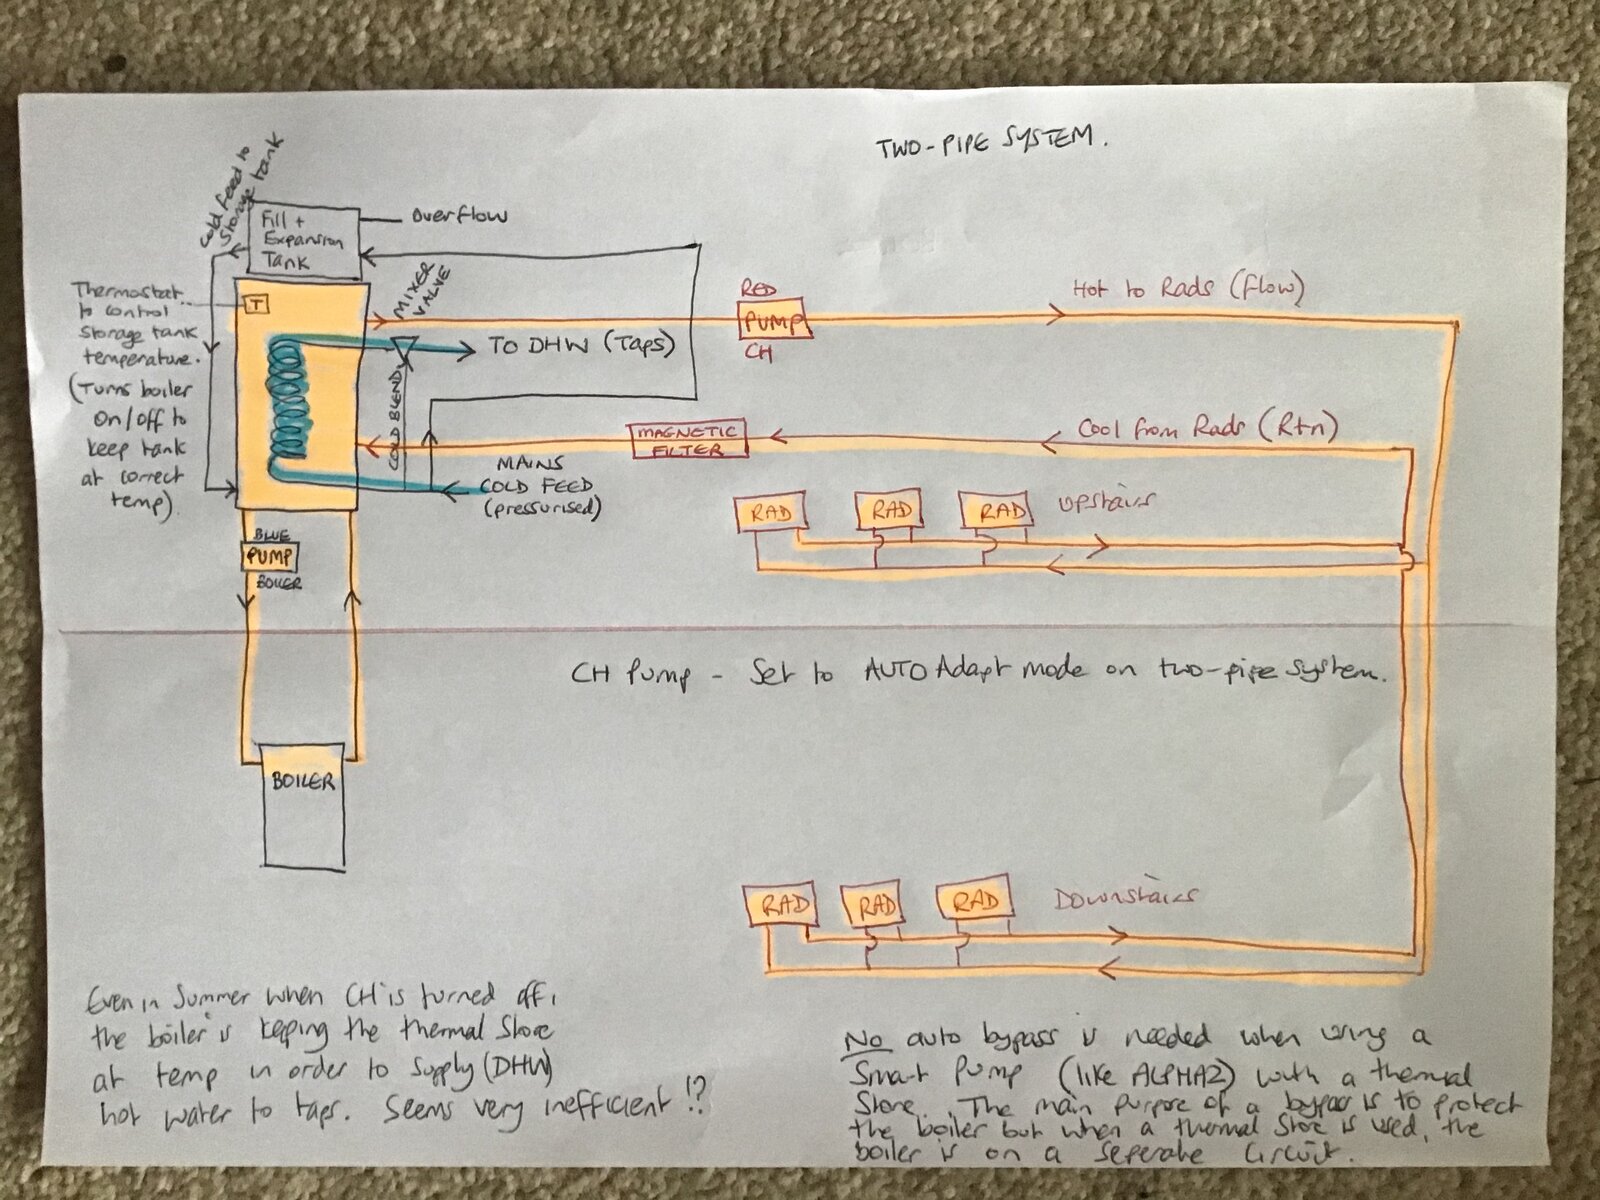 TWO-PIPE SYSTEM.
Cold feed to
Storage tank
Fill +
Expansion
Tank
Overflow
Thermostat
to control
storage tank
temperature.
(Turns boiler
on/off to
keep tank
at correct
temp)
T
MIXER
VALVE
TO DHW (Taps)
COLD BLEND
MAINS
COLD FEED
(pressurised)
RED
PUMP
CH
Hot to Rads (flow)
MAGNETIC
FILTER
Cool from Rads (Rtn)
RAD
RAD
RAD
Upstairs
BLUE
PUMP
BOILER
CH Pump - Set to AUTO Adapt mode on two-pipe system.
BOILER
RAD
RAD
RAD
Downstairs
Even in Summer when CH is turned off,
the boiler is keeping the thermal store
at temp in order to supply (DHW)
hot water to taps. Seems very inefficient !?
No auto bypass is needed when using a
Smart Pump (like ALPHA2) with a thermal
Store. The main purpose of a bypass is to protect
the boiler but when a thermal store is used, the
boiler is on a seperate circuit.